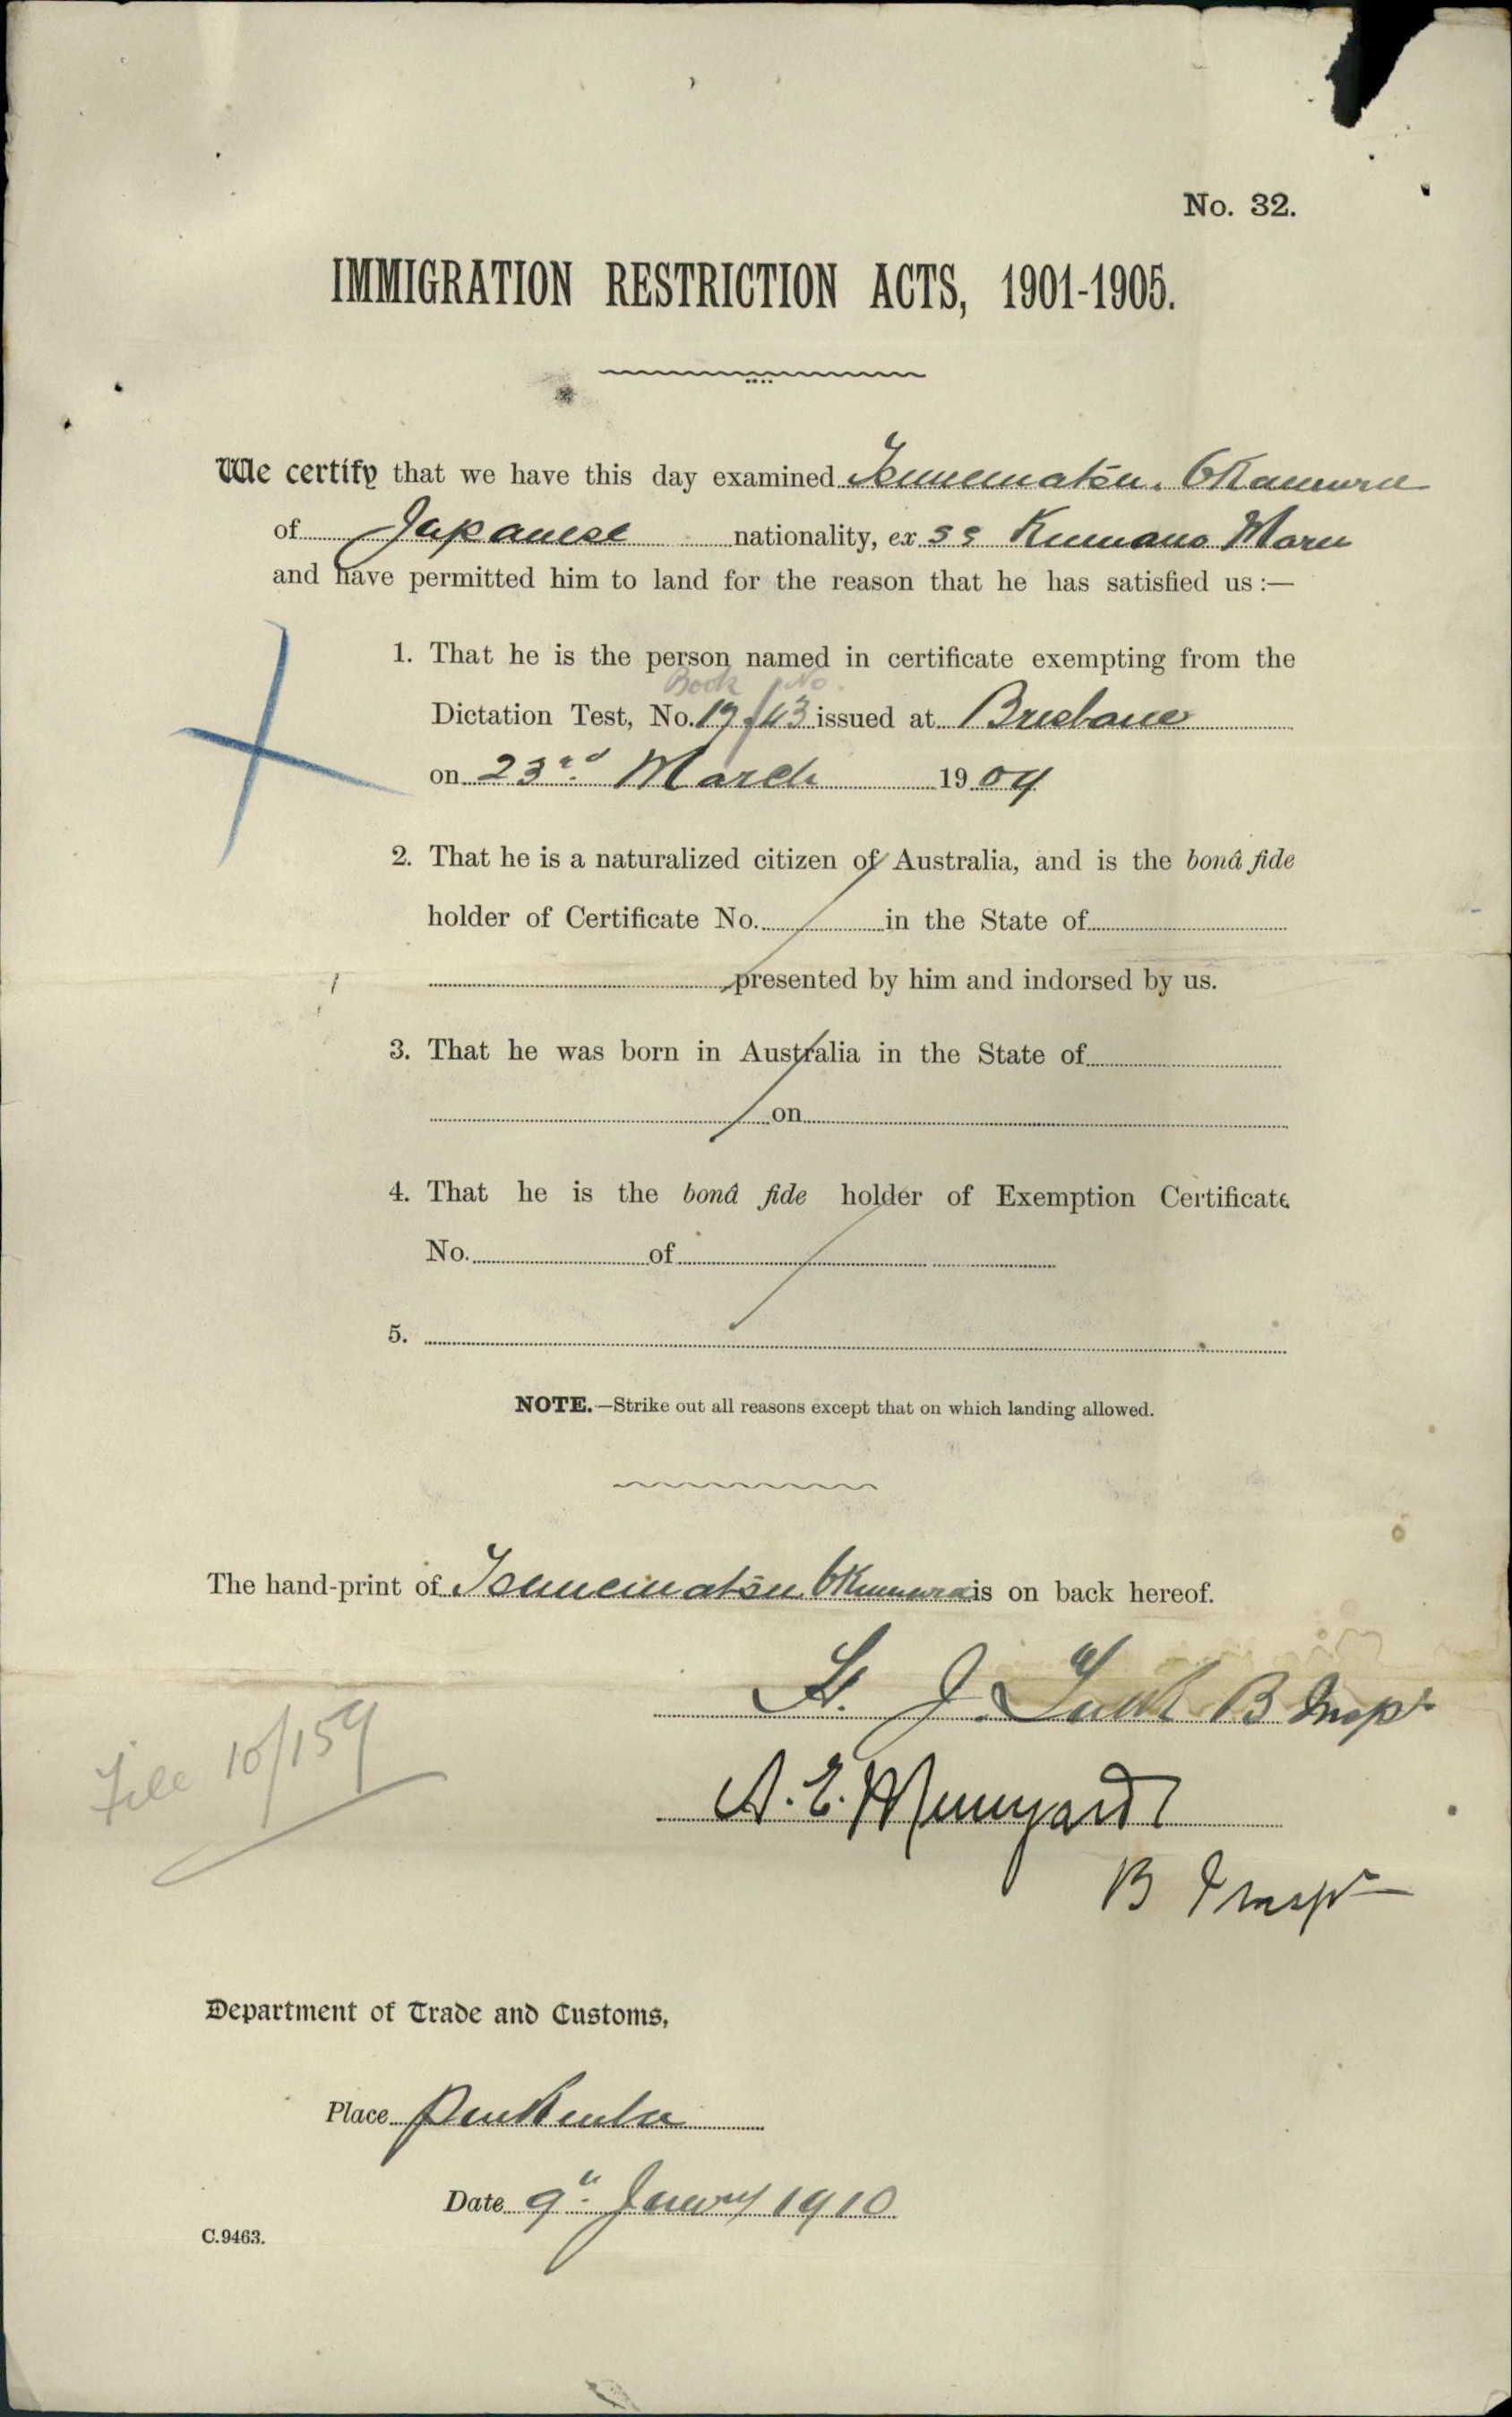 No. 32.
IMMIGRATION RESTRICTION ACTS, 1901-1905.
We certify that we have this day examined Tsunematsu. Okamura
of Japanese nationality, ex ss Kumano Maru
and have permitted him to land for the reason that he has satisfied us :—
1. That he is the person named in certificate exempting from the
Book No.
Dictation Test, No. 19/43 issued at Brisbane
on 23rd March 1904
2. That he is a naturalized citizen of Australia, and is the bonâ fide
holder of Certificate No. in the State of
presented by him and indorsed by us.
3. That he was born in Australia in the State of
on
4. That he is the bonâ fide holder of Exemption Certificate
No. of
5.
NOTE.—Strike out all reasons except that on which landing allowed.
The hand-print of Tsunematsu Okamura is on back hereof.
J. B Inspr
A. E.
B Inspr
File 10/159
Department of Trade and Customs,
Place Pinkenba
Date 9th January 1910
C.9463.